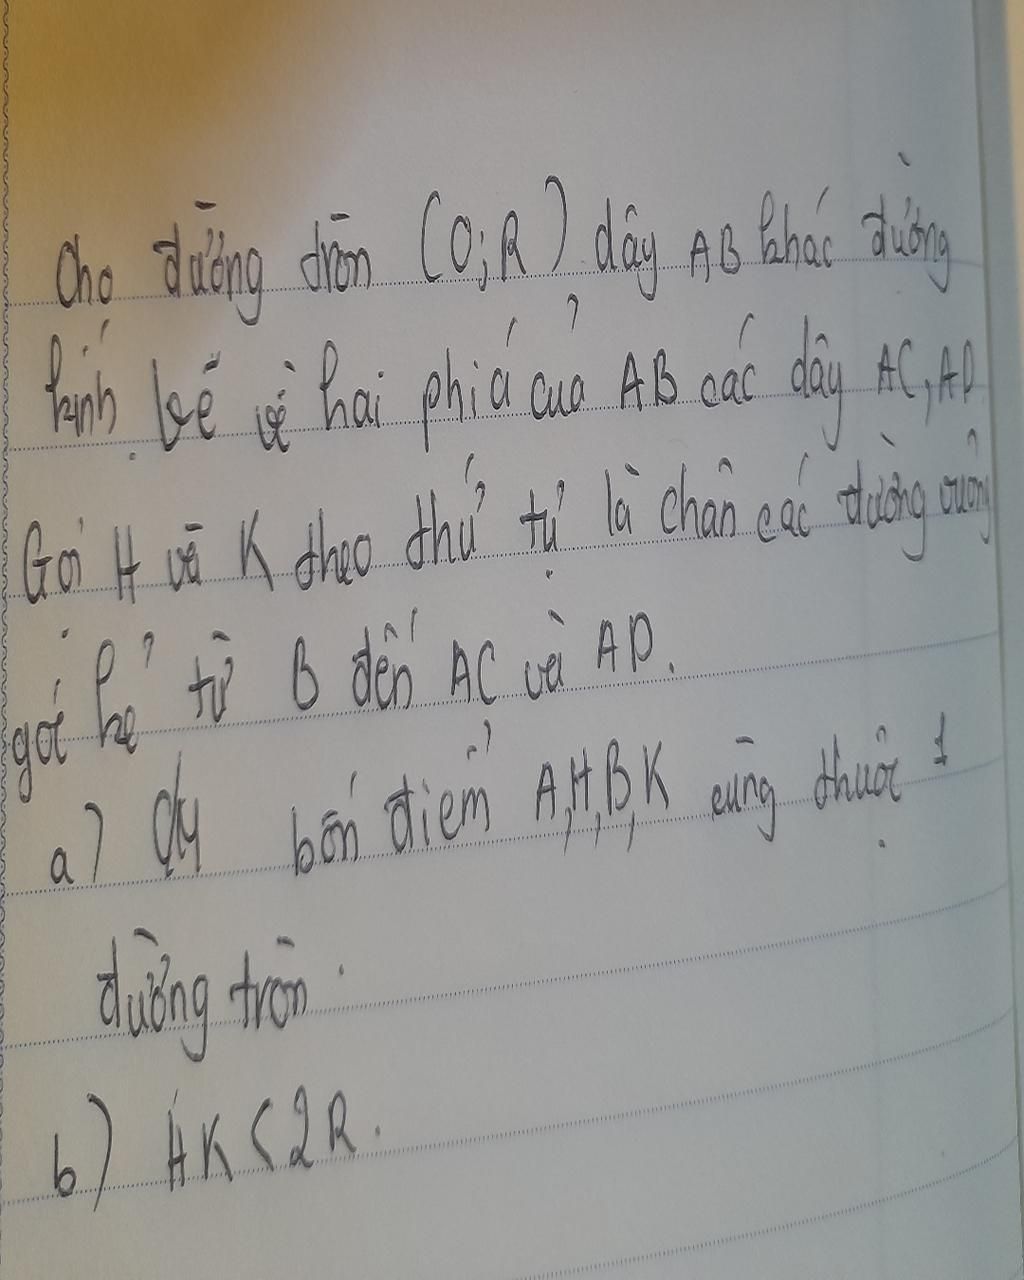 Cho đường tròn (O;R) dây AB khác đường
kính. Vẽ về hai phía của AB các dây AC, AD
Gọi H và K theo thứ tự là chân các đường vuông
góc kẻ từ B đến AC và AD.
a) CM bốn điểm A,H,B,K cùng thuộc 1
đường tròn.
b) HK < 2R.